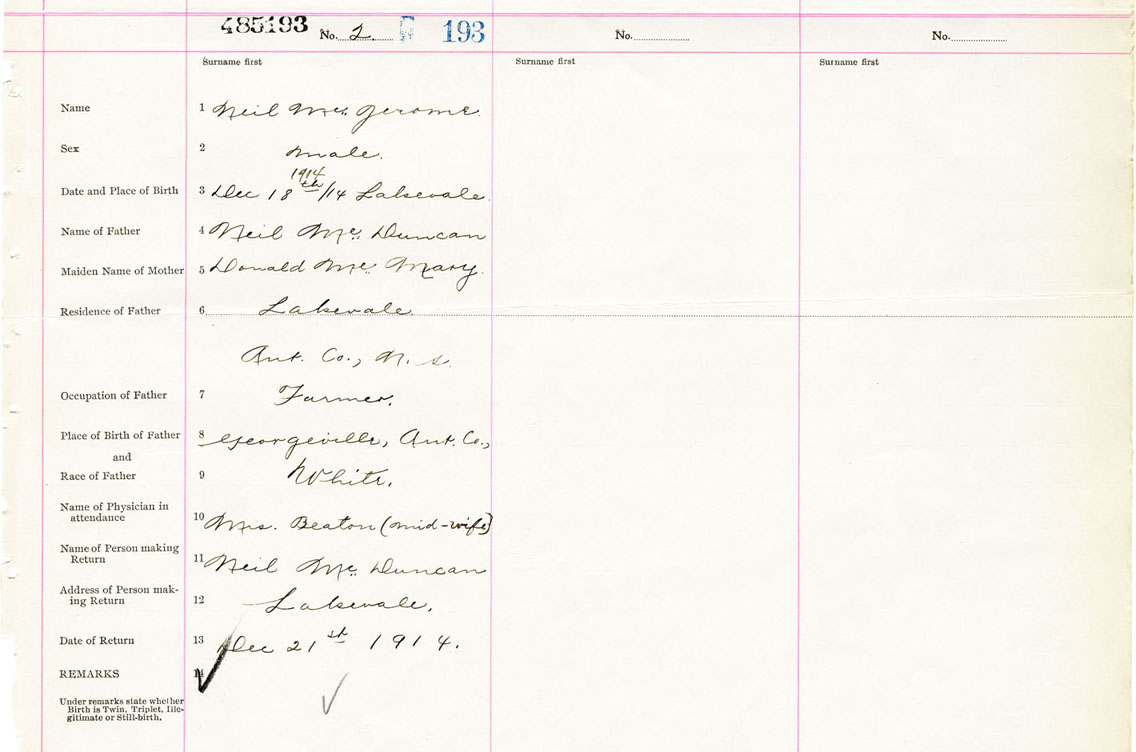 485193 No. 2 193 No. No.
Surname first Surname first Surname first
Name 1 Neil Mc. Jerome.
Sex 2 Male.
1914
Date and Place of Birth 3 Dec 18th/14 Lakevale.
Name of Father 4 Neil Mc. Duncan
Maiden Name of Mother 5 Donald Mc. Mary.
Residence of Father 6 Lakevale
Ant. Co., N. S.
Occupation of Father 7 Farmer.
Place of Birth of Father 8 Georgeville, Ant. Co.,
and
Race of Father 9 White.
Name of Physician in
attendance 10 Mrs. Beaton (mid-wife)
Name of Person making
Return 11 Neil Mc. Duncan
Address of Person mak-
ing Return 12 Lakevale.
Date of Return 13 Dec 21st 1914.
REMARKS 14
Under remarks state whether
Birth is Twin, Triplet, Ille-
gitimate or Still-birth.